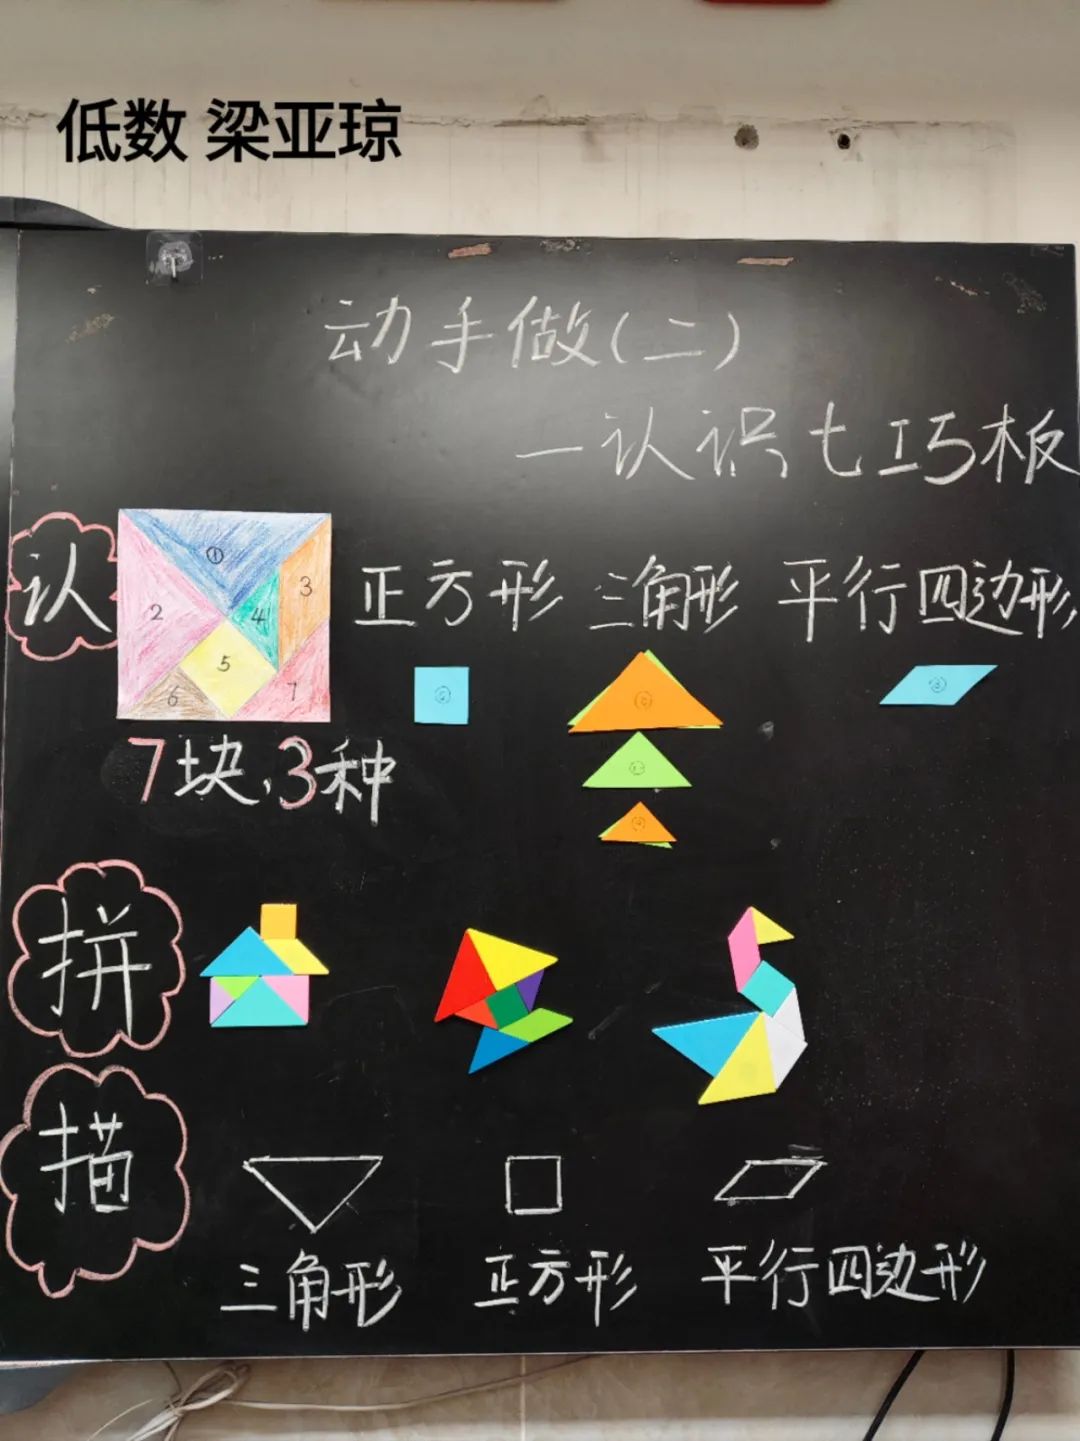 低数 梁亚琼
动手做(二)
—认识七巧板
认
① 2 3 4 5 6 7
正方形 三角形 平行四边形
7块,3种
拼
描
三角形 正方形 平行四边形